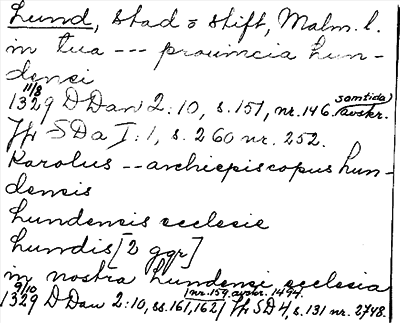 Lund, stad o stift, Malm. l.
in tua --- prouincia lun-
densi
11/8
1329 DDan 2:10, s. 157, nr. 146. samtida avskr.
Jfr SDa I:1, s. 260 nr. 252.
Karolus -- archiepiscopus lun-
densis
lundensis ecclesie
lundis [2 ggr]
in nostra lundensi ecclesia
9/10 nr. 159. avskr. 1494.
1329 DDan 2:10, ss. 161, 162 Jfr SD 4, s. 131 nr. 2748.